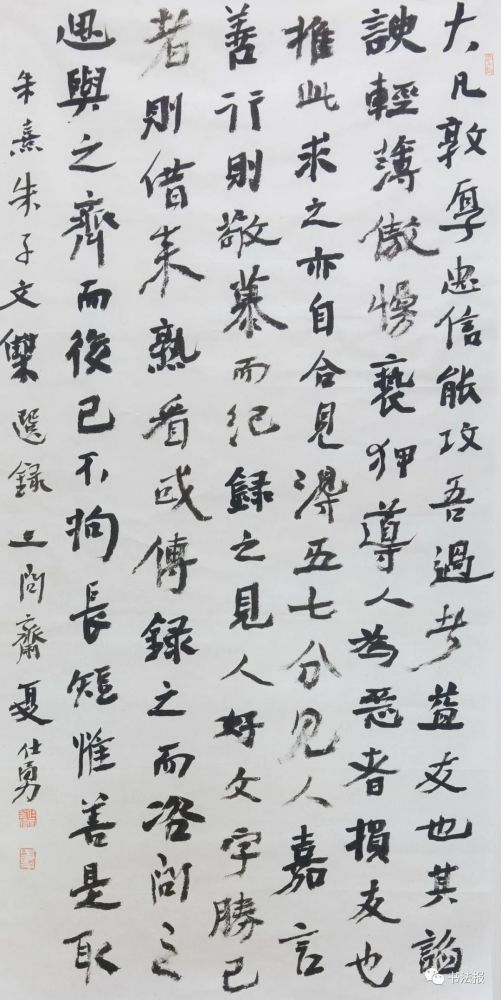 大凡敦厚忠信能攻吾過者益友也其諂
諛輕薄傲慢褻狎導人為惡者損友也
推此求之亦自合見得五七分見人嘉言
善行則敬慕而紀錄之見人好文字勝己
者則借來熟看或傳錄之而咨問之
思與之齊而後已不拘長短惟善是取
朱熹朱子文選錄 問齋夏仕勇
书法报